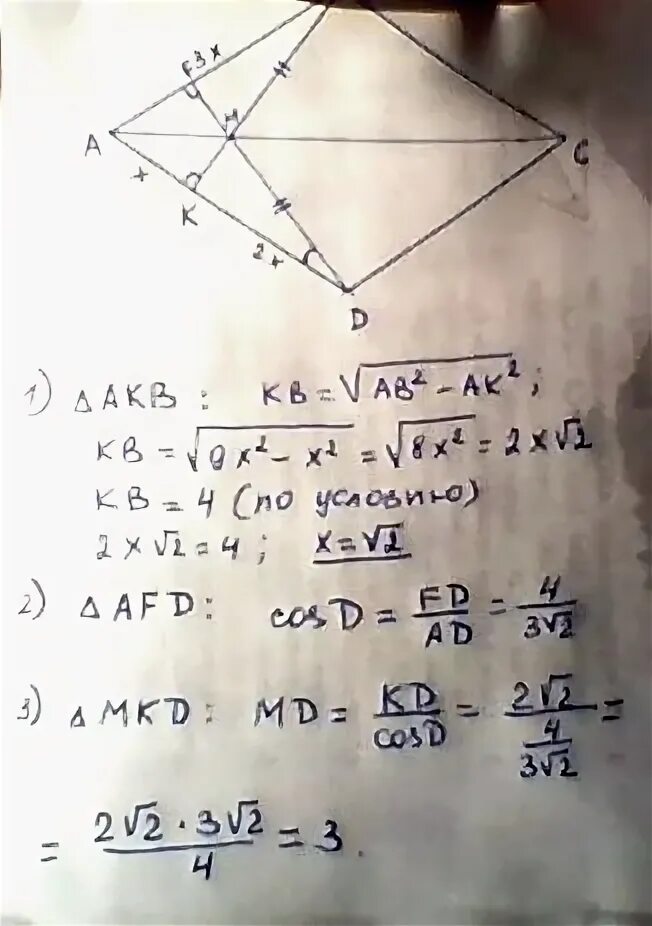 F 3x
M
A
C
x
K
2x
D
1) △AKB : KB = √(AB² - AK²) ;
KB = √(9x² - x²) = √(8x²) = 2x√2
KB = 4 (по условию)
2x√2 = 4 ; x = √2
2) △AFD : cosD = FD/AD = 4/(3√2)
3) △MKD : MD = KD/cosD = 2√2/(4/(3√2)) =
= (2√2 · 3√2)/4 = 3.